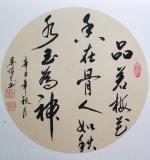 品若梅花
香在骨人如秋
水玉为神
辛丑年秋月